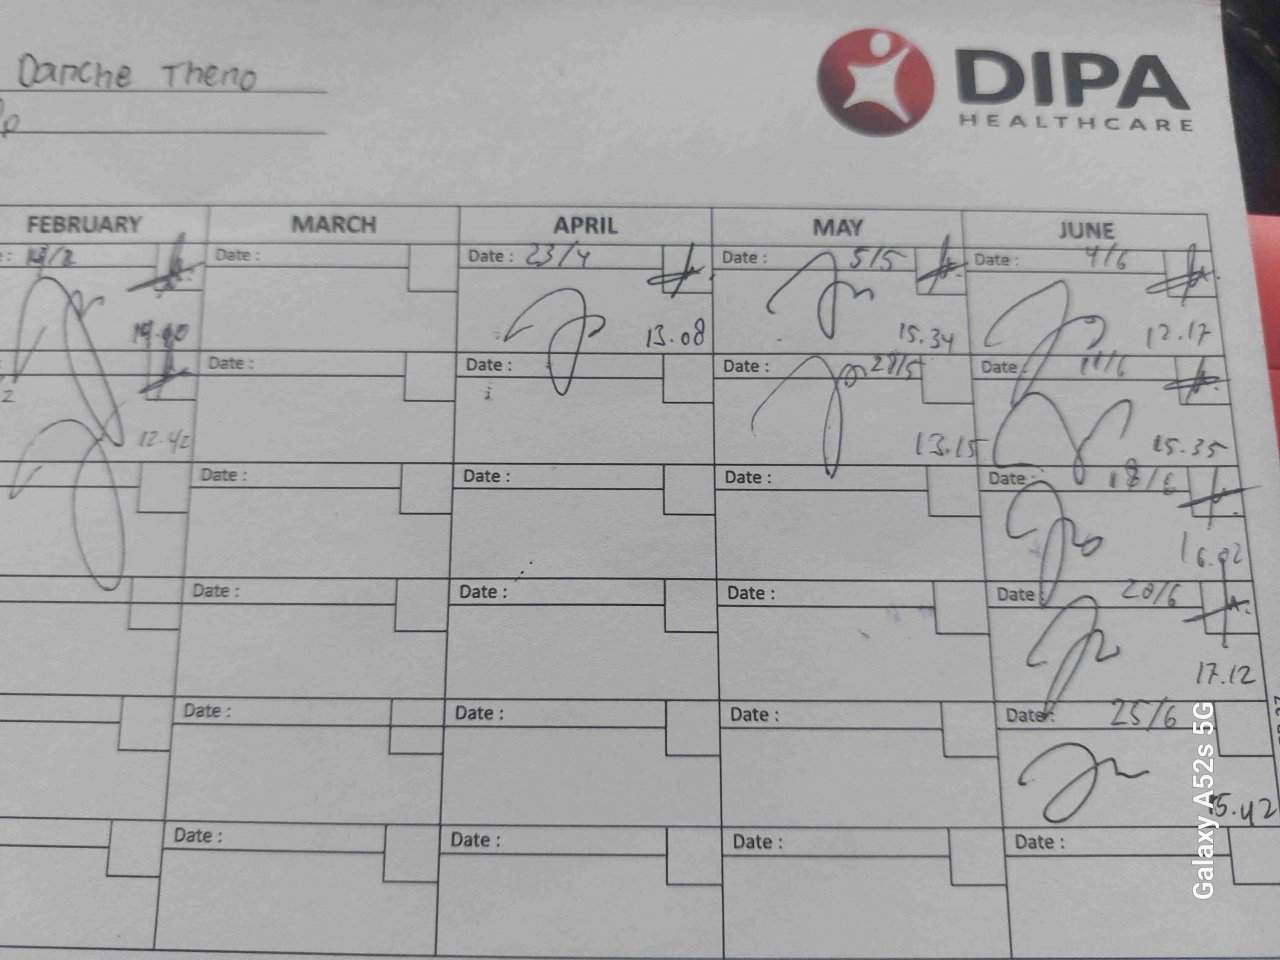 Danche Theno
DIPA
HEALTHCARE
FEBRUARY MARCH APRIL MAY JUNE
Date : Date : 23/4 Date : 5/5 Date : 4/6
13.08 15.34 12.17
Date : Date : Date : 28/5 Date 11/6
12.42 13.15 15.35
Date : Date : Date : Date : 18/6
16.02
Date : Date : Date : Date : 20/6
17.12
Date : Date : Date : Date : 25/6
15.42
Date : Date : Date : Date :
Galaxy A52s 5G